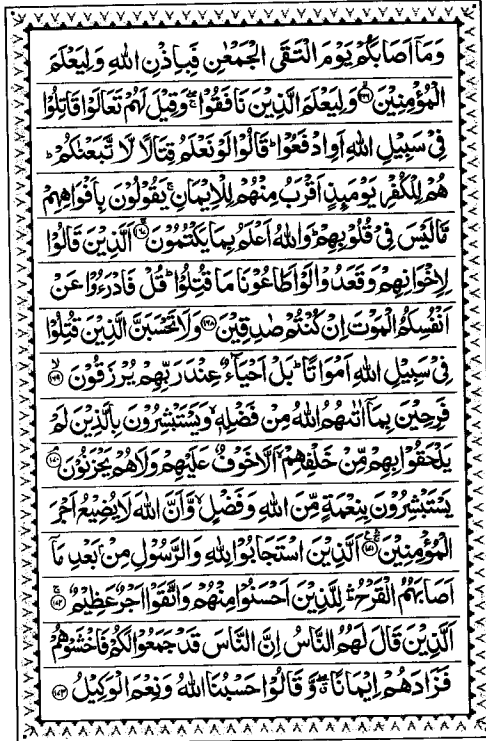 وَمَآ اَصَابَكُمْ يَوْمَ الْتَقَى الْجَمْعٰنِ فَبِاِذْنِ اللهِ وَلِيَعْلَمَ
الْمُؤْمِنِيْنَ ۝۱۶۶ وَلِيَعْلَمَ الَّذِيْنَ نَافَقُوْا ۖۚ وَقِيْلَ لَهُمْ تَعَالَوْا قَاتِلُوْا
فِيْ سَبِيْلِ اللهِ اَوِ ادْفَعُوْا ؕ قَالُوْا لَوْ نَعْلَمُ قِتَالًا لَّا تَّبَعْنٰكُمْ ؕ
هُمْ لِلْكُفْرِ يَوْمَىِٕذٍ اَقْرَبُ مِنْهُمْ لِلْاِيْمَانِ ۚ يَقُوْلُوْنَ بِاَفْوَاهِهِمْ
مَّا لَيْسَ فِيْ قُلُوْبِهِمْ ؕ وَاللهُ اَعْلَمُ بِمَا يَكْتُمُوْنَ ۝۱۶۷ ۚ اَلَّذِيْنَ قَالُوْا
لِاِخْوَانِهِمْ وَقَعَدُوْا لَوْ اَطَاعُوْنَا مَا قُتِلُوْا ؕ قُلْ فَادْرَءُوْا عَنْ
اَنْفُسِكُمُ الْمَوْتَ اِنْ كُنْتُمْ صٰدِقِيْنَ ۝۱۶۸ وَلَا تَحْسَبَنَّ الَّذِيْنَ قُتِلُوْا
فِيْ سَبِيْلِ اللهِ اَمْوَاتًا ؕ بَلْ اَحْيَآءٌ عِنْدَ رَبِّهِمْ يُرْزَقُوْنَ ۝۱۶۹ ۙ
فَرِحِيْنَ بِمَآ اٰتٰىهُمُ اللهُ مِنْ فَضْلِهٖ ۙ وَيَسْتَبْشِرُوْنَ بِالَّذِيْنَ لَمْ
يَلْحَقُوْا بِهِمْ مِّنْ خَلْفِهِمْ ۙ اَلَّا خَوْفٌ عَلَيْهِمْ وَلَا هُمْ يَحْزَنُوْنَ ۝۱۷۰ ۘ
يَسْتَبْشِرُوْنَ بِنِعْمَةٍ مِّنَ اللهِ وَفَضْلٍ ۙ وَّاَنَّ اللهَ لَا يُضِيْعُ اَجْرَ
الْمُؤْمِنِيْنَ ۝۱۷۱ ۛۚ اَلَّذِيْنَ اسْتَجَابُوْا لِلهِ وَالرَّسُوْلِ مِنْۢ بَعْدِ مَآ
اَصَابَهُمُ الْقَرْحُ ؕۛ لِلَّذِيْنَ اَحْسَنُوْا مِنْهُمْ وَاتَّقَوْا اَجْرٌ عَظِيْمٌ ۝۱۷۲ ۚ
اَلَّذِيْنَ قَالَ لَهُمُ النَّاسُ اِنَّ النَّاسَ قَدْ جَمَعُوْا لَكُمْ فَاخْشَوْهُمْ
فَزَادَهُمْ اِيْمَانًا ۖۗ وَّقَالُوْا حَسْبُنَا اللهُ وَنِعْمَ الْوَكِيْلُ ۝۱۷۳